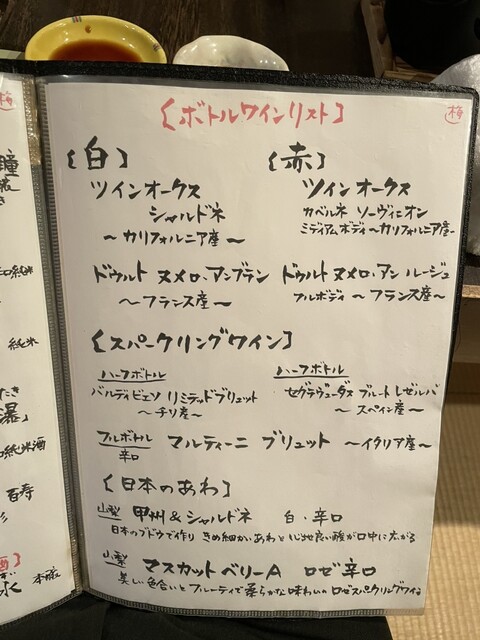 瞳
純米
瀑」
純米酒
百寿
酒】
本醸
梅
【ボトルワインリスト】
梅
【白】
ツインオークス
シャルドネ
～カリフォルニア産～
ドゥルト ヌメロ・アン ブラン
～フランス産～
【赤】
ツインオークス
カベルネ ソーヴィニオン
ミディアムボディ～カリフォルニア産～
ドゥルト ヌメロ・アン ルージュ
フルボディ ～フランス産～
【スパークリングワイン】
ハーフボトル
バルディビエソ リミテッドブリュット
～チリ産～
ハーフボトル
セグラヴューダス ブルート レゼルバ
～スペイン産～
フルボトル
辛口
マルティーニ ブリュット ～イタリア産～
【日本のあわ】
山梨 甲州&シャルドネ 白・辛口
日本のブドウで作り きめ細かいあわと心地良い酸が口中に広がる
山梨 マスカットベリーA ロゼ辛口
美しい色合いとフルーティで柔らかな味わいのロゼスパークリングワイン